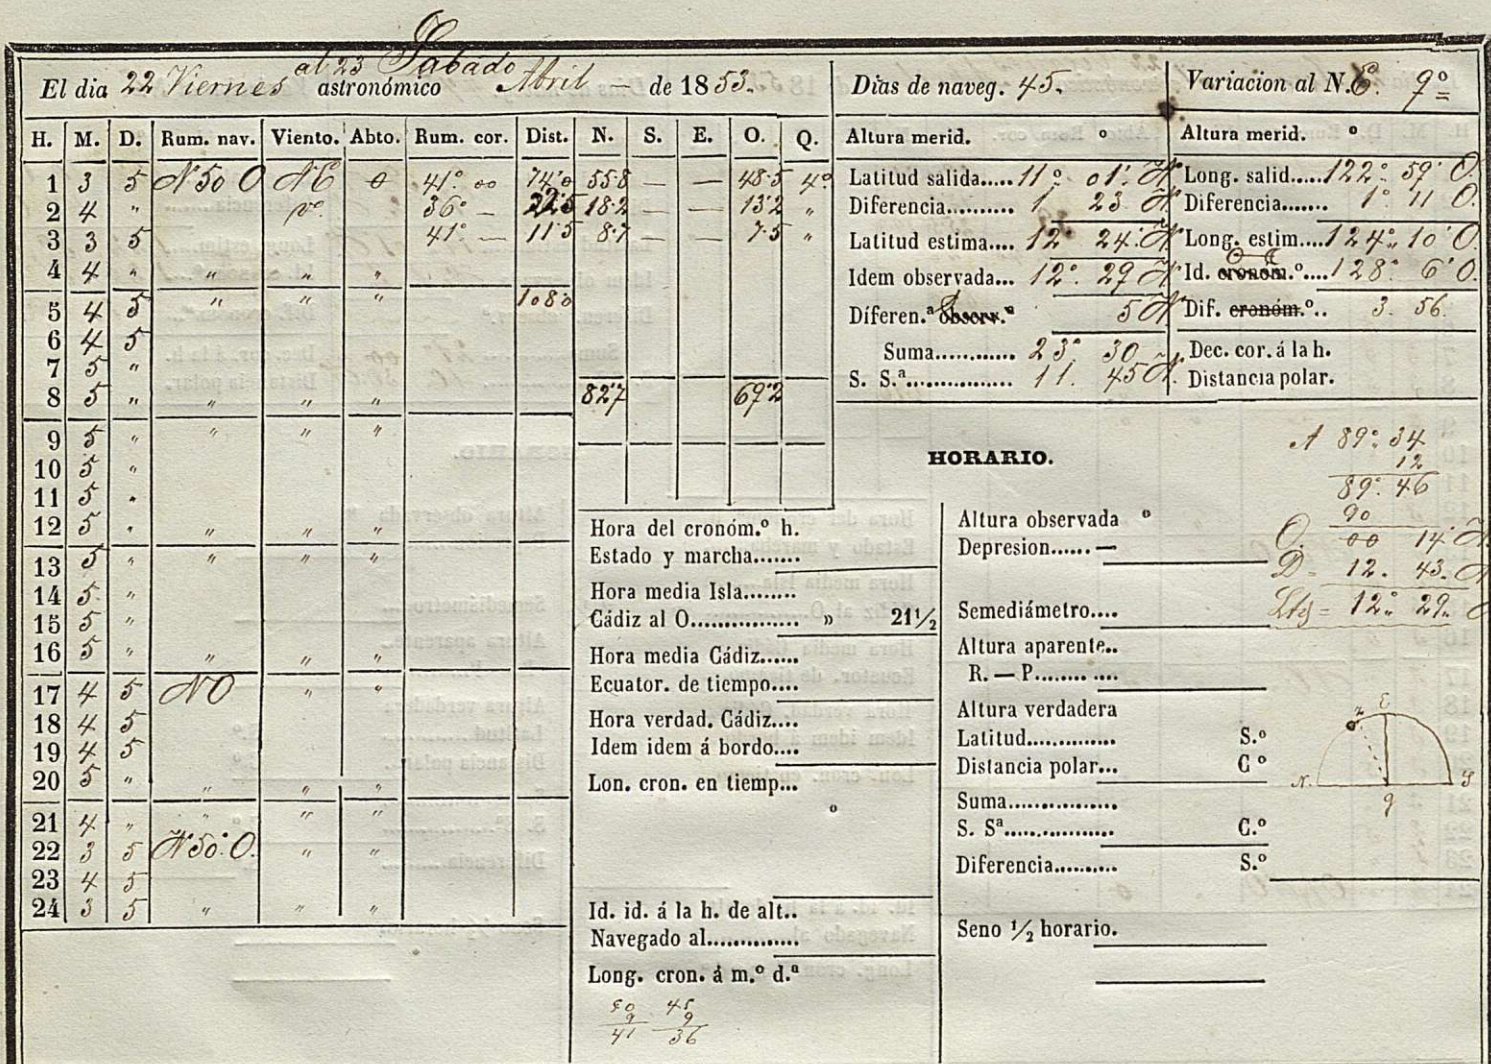 al 23 Sabado
El dia 22 Viernes astronómico Abril — de 1853.
Dias de naveg. 45.
Variacion al N.E. 9º
H. M. D. Rum. nav. Viento. Abto. Rum. cor. Dist. N. S. E. O. Q.
1 3 5 N 50 O NE 0 41º 00 74'0 55'8 — — 48'5 4º
2 4 " 36º — 22'5 18'2 — — 13'2 "
3 3 5 41º — 11'5 8'7 — — 7'5 "
4 4 " " " "
5 4 5 " " " 108'0
6 4 5
7 5 "
8 5 " " " " 82'7 69'2
9 5 " " " "
10 5 "
11 5 "
12 5 " " " "
13 5 " " " "
14 5 "
15 5 "
16 5 " " " "
17 4 5 NO " "
18 4 5
19 4 5
20 5 " " " "
21 4 " " " "
22 3 5 N 50º O. " "
23 4 5
24 3 5 " " "
Altura merid. º
Latitud salida..... 11º 01' N
Diferencia.......... 1 23 N
Latitud estima.... 12 24' N
Idem observada... 12º 29 N
Díferen.ª observ.ª 5 N
Suma............ 23º 30
S. S.ª............... 11. 45 N.
Altura merid. º
Long. salid..... 122º 59' O
Diferencia....... 1º 11 O.
Long. estim.... 124º 10' O.
Id. cronóm.º.... 128º 6' O.
Dif. cronóm.º.. 3. 56.
Dec. cor. á la h.
Distancia polar.
HORARIO.
A 89º 34
12
89º 46
90
O. 00 14' N
D = 12. 43. N
Ltd = 12º 29.
Hora del cronóm.º h.
Estado y marcha.......
Hora media Isla........
Cádiz al O............... » 21½
Hora media Cádiz.....
Ecuator. de tiempo....
Hora verdad. Cádiz....
Idem idem á bordo....
Lon. cron. en tiemp...
º
Id. id. á la h. de alt..
Navegado al..............
Long. cron. á m.º d.ª
50 45
9 9
41 36
Altura observada º
Depresion...... —
Semediámetro....
Altura aparente..
R. — P........ ....
Altura verdadera
Latitud.............. S.º
Distancia polar... C º
Suma................
S. Sª................. C.º
Diferencia.......... S.º
Seno ½ horario.
z E
N. S
q